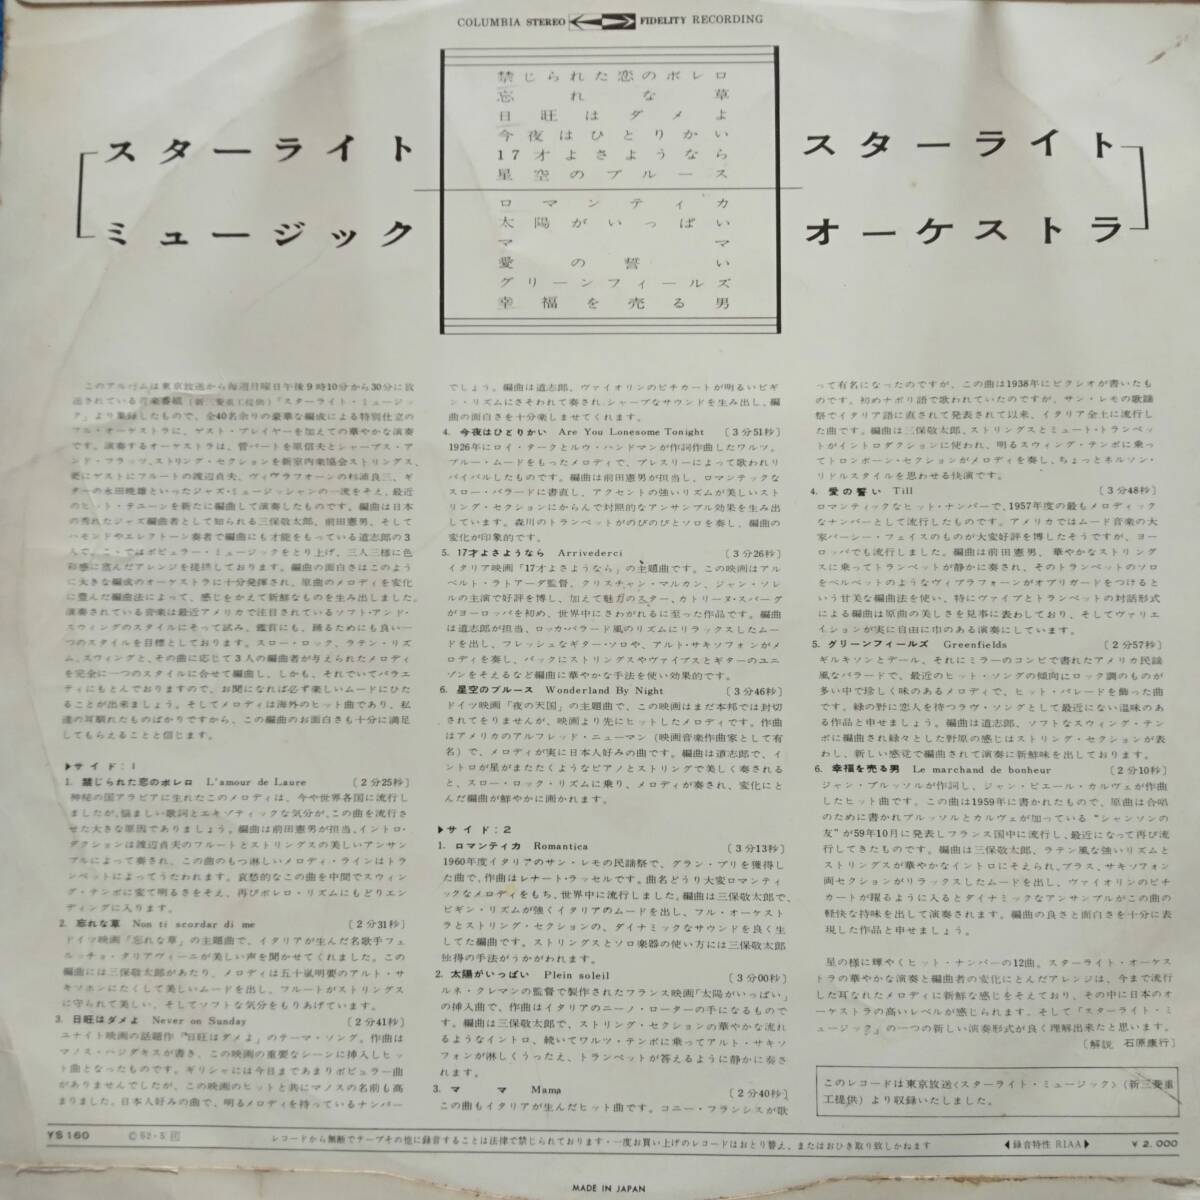 COLUMBIA STEREO FIDELITY RECORDING
禁じられた恋のボレロ
忘れな草
日曜はダメよ
今夜はひとりかい
17才よさようなら
星空のブルース
ロマンティカ
太陽がいっぱい
ママ
愛の誓い
グリーンフィールズ
幸福を売る男
スターライト
ミュージック
スターライト
オーケストラ
このアルバムは東京放送から毎週月曜日午後9時10分から30分に放
送されている音楽番組(新三菱重工提供)「スターライト・ミュージッ
ク」より集録したもので、全40名余りの豪華な編成による特別仕立の
フル・オーケストラに、ゲスト・プレイヤーを加えての華やかな演奏
です。演奏するオーケストラは、管パートを原信夫とシャープス・ア
ンド・フラッツ、ストリング・セクションを新室内楽協会ストリングス、
更にゲストにフルートの渡辺貞夫、ヴィブラフォーンの杉浦良三、ギ
ターの永田暁雄といったジャズ・ミュージッシャンの一流をそえ、最近
のヒット・テューンを新たに編曲して演奏したものです。編曲は日本
の秀れたジャズ編曲者として知られる三保敬太郎、前田憲男、そして
ハモンドやエレクトーン奏者で編曲にも才能をもっている道志郎の3
人で、こゝではポピュラー・ミュージックをとり上げ、三人三様に色
彩感に富んだアレンジを提供しております。編曲の面白さはこのよう
に大きな編成のオーケストラに十分発揮され、原曲のメロディを変化
に豊んだ編曲法によって、感じをかえて新鮮なものを生み出しました。
演奏されている音楽は最近アメリカで注目されているソフト・アンド・
スウィングのスタイルにそって試み、鑑賞にも、踊るためにも良い一
つのスタイルを目標としております。スロー・ロック、ラテン・リズ
ム、スウィングと、その曲に応じて3人の編曲者が与えられたメロディ
を完全に一つのスタイルに合せて編曲し、しかも、それでいてバラエ
ティにもとんでおりますので、お聞になれば必ず楽しいムードにひた
ることが出来ましょう。そしてメロディは海外のヒット曲であり、私
達の耳馴れたものばかりですから、この編曲のお面白さも十分に満足
してもらえることと信じます。
▶サイド:1
1. 禁じられた恋のボレロ L'amour de Laure 〔2分25秒〕
神秘の国アラビアに生れたこのメロディは、今や世界各国に流行し
ましたが、悩ましい歌詞とエキゾティックな気分が、この曲を流行さ
せた大きな原因でありましょう。編曲は前田憲男が担当、イントロ・
ダクションは渡辺貞夫のフルートとストリングスの美しいアンサン
ブルによって奏され、この曲のもつ淋しいメロディ・ラインはトラン
ペットによってうたわれます。哀愁的なこの曲を中間でスウィン
グ・テンポに変て明るさをそえ、再びボレロ・リズムにもどりエン
ディングに入ります。
2. 忘れな草 Non ti scordar di me 〔2分31秒〕
ドイツ映画「忘れな草」の主題曲で、イタリアが生んだ名歌手フェ
ルッチョ・タリアヴィーニが美しい声を聞かせてくれました。この
編曲には三保敬太郎があたり、メロディは五十嵐明要のアルト・サ
キソホンにたくして美しいムードを出し、フルートがストリングス
に守られて美しい、そしてソフトな気分をもりあげています。
3. 日曜はダメよ Never on Sunday 〔2分41秒〕
ユナイト映画の話題作「日曜はダメよ」のテーマ・ソング。作曲は
マノス・ハジダキスが書き、この映画の重要なシーンに挿入しヒッ
ト曲となったものです。ギリシャには今日まであまりポピュラー曲
がありませんでしたが、この映画のヒットと共にマノスの名前も高
まりました。日本人好みの曲で、明るメロディを持っているナンバー
でしょう。編曲は道志郎、ヴァイオリンのピチカートが明るいビギ
ン・リズムにさそわれて奏され、シャープなサウンドを生み出し、編
曲の面白さを十分楽しませてくれます。
4. 今夜はひとりかい Are You Lonesome Tonight 〔3分51秒〕
1926年にロイ・タークとルウ・ハンドマンが作詞作曲したワルツ。
ブルー・ムードをもったメロディで、プレスリーによって歌われリ
バイバルしたものです。編曲は前田憲男が担当し、ロマンテックな
スロー・バラードに書直し、アクセントの強いリズムが美しいスト
リング・セクションにからんで対照的なアンサンブル効果を生み出
しています。森川のトランペットがのびのびとソロを奏し、編曲の
変化が印象的です。
5. 17才よさようなら Arrivederci 〔3分26秒〕
イタリア映画「17才よさようなら」の主題曲です。この映画はアル
ベルト・ラトアーダ監督、クリスチャン・マルカン、ジャン・ソレ
ルの主演で好評を博し、加えて魅力のスター、カトリーヌ・スパーグ
がヨーロッパを初め、世界中にさわがれるに至った作品です。編曲
は道志郎が担当、ロッカ・バラード風のリズムにリラックスしたムー
ドを出し、フレッシュなギター・ソロや、アルト・サキソフォンがメ
ロディを奏し、バックにストリングスやヴァイブスとギターのユニ
ゾンをそえるなど編曲に華やかな手法を使い効果的です。
6. 星空のブルース Wonderland By Night 〔3分46秒〕
ドイツ映画「夜の天国」の主題曲で、この映画はまだ本邦では封切
されてをりませんが、映画より先にヒットしたメロディです。作曲
はアメリカのアルフレッド・ニューマン(映画音楽作曲家として有
名)で、メロディが実に日本人好みの曲です。編曲は道志郎で、イ
ントロが星がまたたくようなピアノとストリングで美しく奏される
と、スロー・ロック・リズムに乗り、メロディが奏され、変化にと
んだ編曲が鮮やかに画かれます。
▶サイド:2
1. ロマンティカ Romantica 〔3分13秒〕
1960年度イタリアのサン・レモの民謡祭で、グラン・プリを獲得し
た曲で、作曲はレナート・ラッセルです。曲名どうり大変ロマンティ
ックなメロディをもち、世界中に流行しました。編曲は三保敬太郎で、
ビギン・リズムが強くイタリアのムードを出し、フル・オーケスト
ラとストリング・セクションの、ダイナミックなサウンドを良く生
してた編曲です。ストリングスとソロ楽器の使い方には三保敬太郎
独得の手法がうかがわれます。
2. 太陽がいっぱい Plein soleil 〔3分00秒〕
ルネ・クレマンの監督で製作されたフランス映画「太陽がいっぱい」
の挿入曲で、作曲はイタリアのニーノ・ローターの手になるもので
す。編曲は三保敬太郎で、ストリング・セクションの華やかな流れ
るようなイントロ、続いてワルツ・テンポに乗ってアルト・サキソ
フォンが淋しくうったえ、トランペットが答えるように静かに奏さ
れます。
3. ママ Mama 〔2分40秒〕
この曲もイタリアが生んだヒット曲です。コニー・フランシスが歌
って有名になったのですが、この曲は1938年にビクシオが書いたも
のです。初めナポリ語で歌われていたのですが、サン・レモの歌謡
祭でイタリア語に直されて発表されて以来、イタリア全土に流行し
た曲です。編曲は三保敬太郎、ストリングスとミュート・トランペッ
トがイントロダクションに使われ、明るスウィング・テンポに乗っ
てトロンボーン・セクションがメロディを奏し、ちょっとネルソン・
リドルスタイルを思わせる快演です。
4. 愛の誓い Till 〔3分48秒〕
ロマンティックなヒット・ナンバーで、1957年度の最もメロディック
なナンバーとして流行したものです。アメリカではムード音楽の大
家パーシー・フェイスのものが大変好評を博したそうですが、ヨー
ロッパでも流行しました。編曲は前田憲男、華やかなストリングス
に乗ってトランペットが静かに奏され、そのトランペットのソロ
をベルベットのようなヴィブラフォーンがオブリガードをつけると
いう甘美な編曲法を使い、特にヴァイブとトランペットの対話形式
による編曲は原曲の美しさを見事に表わしており、そしてヴァリエ
イションが実に自由に巾のある演奏にしています。
5. グリーンフィールズ Greenfields 〔2分57秒〕
ギルキソンとデール、それにミラーのコンビで書れたアメリカ民謡
風なバラードで、最近のヒット・ソングの傾向にロック調のものが
多い中で珍しく味のあるメロディで、ヒット・パレードを飾った曲
です。緑の野に恋人を待つラヴ・ソングとして最近にない滋味のあ
る作品と申せましょう。編曲は道志郎、ソフトなスウィング・テン
ポに編曲され緑々とした野原の感じはストリング・セクションが表
わし、新しい感覚で編曲されて演奏に新鮮味を出しております。
6. 幸福を売る男 Le marchand de bonheur 〔2分10秒〕
ジャン・ブルッソルが作詞し、ジャン・ピエール・カルヴェが作曲
したヒット曲です。この曲は1959年に書かれたもので、原曲は合唱
のために書かれブルッソルとカルヴェが加っている“シャンソンの
友”が59年10月に発表しフランス国中に流行し、最近になって再び流
行してきたものです。編曲は三保敬太郎、ラテン風な強いリズムと
ストリングスが華やかなイントロにそえられ、ブラス、サキソフォン
両セクションがリラックスしたムードを出し、ヴァイオリンのピチ
カートが躍るように入るとダイナミックなアンサンブルがこの曲の
軽快な持味を出して演奏されます。編曲の良さと面白さを十分に表
現した作品と申せましょう。
星の様に輝やくヒット・ナンバーの12曲。スターライト・オーケス
トラの華やかな演奏と編曲者の変化にとんだアレンジは、今まで流行
した耳なれたメロディに新鮮な感じをそえており、その中に日本のオ
ーケストラの高いレベルが感じられます。そして「スターライト・ミ
ュージック」の一つの新しい演奏形式が良く理解出来たと思います。
〔解説 石原康行〕
このレコードは東京放送<スターライト・ミュージック>(新三菱重
工提供)より収録いたしました。
YS 160 © 62・5 レコードから無断でテープその他に録音することは法律で禁じられております・一度お買い上げのレコードはおとり替え、またはおひき取り致しかねます ◀録音特性 RIAA▶ ¥2,000
MADE IN JAPAN